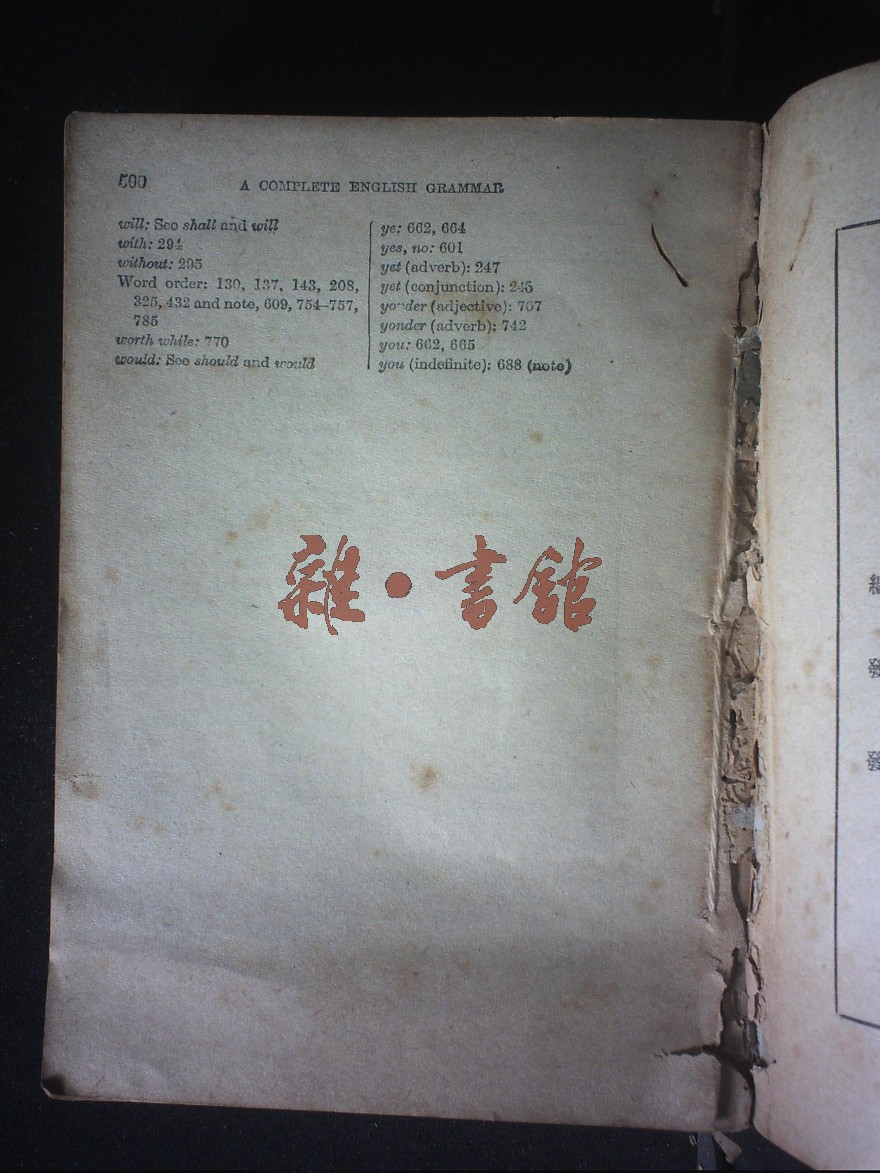 500
A COMPLETE ENGLISH GRAMMAR
will: See shall and will
with: 294
without: 295
Word order: 130, 137, 143, 208,
325, 432 and note, 609, 754–757,
785
worth while: 770
would: See should and would
ye: 662, 664
yes, no: 601
yet (adverb): 247
yet (conjunction): 246
yonder (adjective): 707
yonder (adverb): 742
you: 662, 665
you (indefinite): 688 (note)
雜·書館
發
發